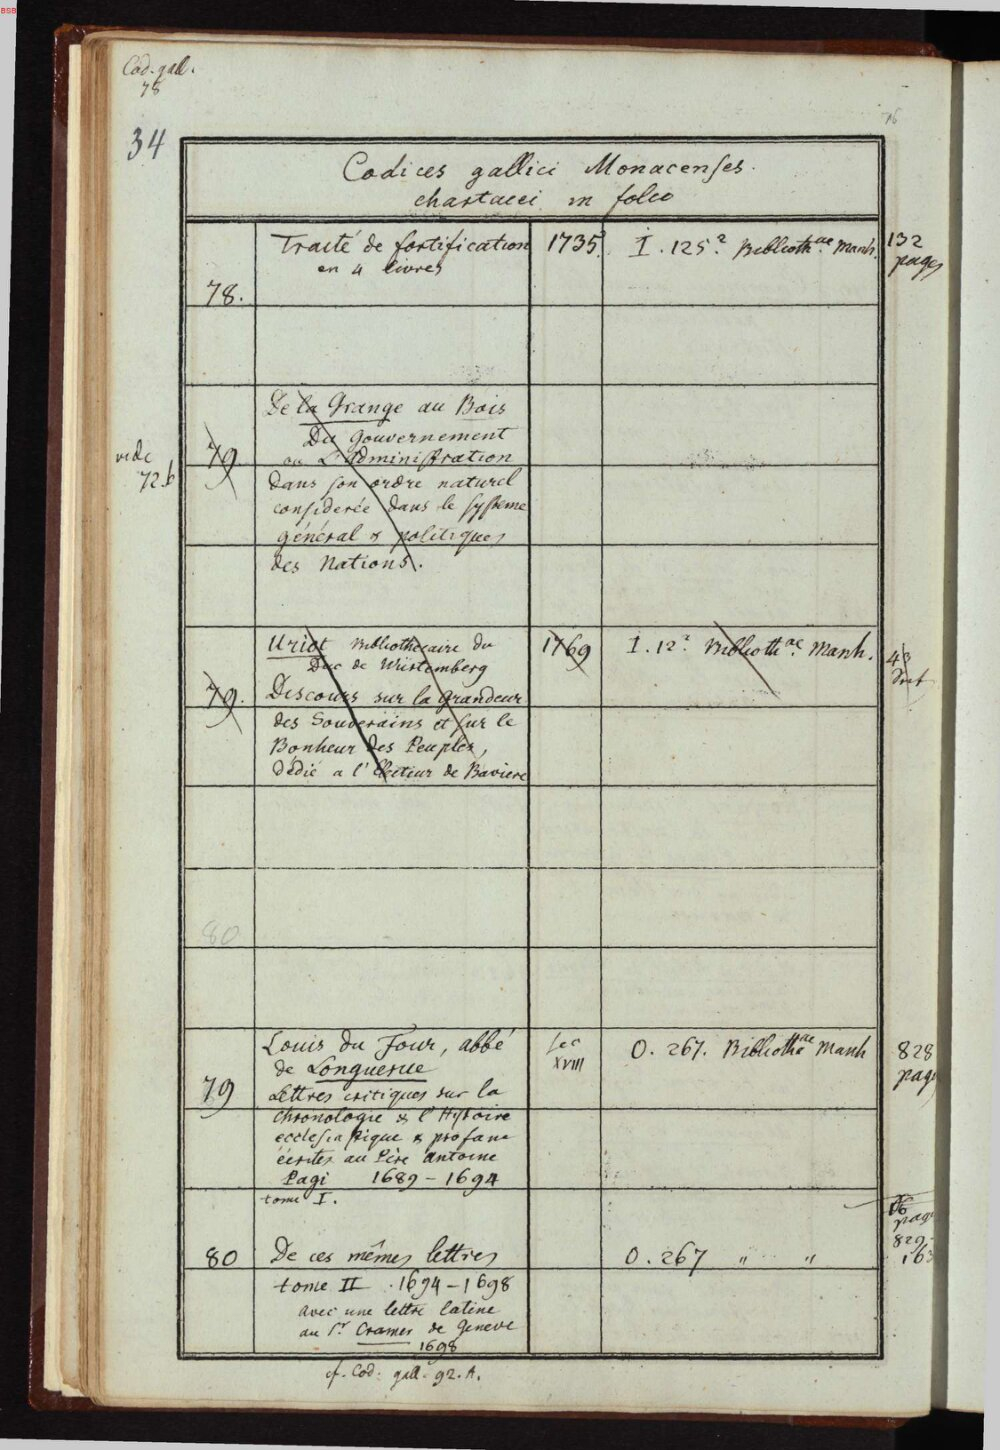 BSB
Cod. gall.
78
34
76
Codices gallici Monacenses.
chartacei in folio
78.
Traité de fortification
en 4 livres
1735.
I. 125² Biblioth.ae Manh.
132
pages
vide
72.b
79.
De la Grange au Bois
Du Gouvernement
ou L'administration
dans son ordre naturel
considerée dans le systeme
général & politiques
des Nations.
79.
Uriot Bibliothecaire du
Duc de Wirtemberg
Discours sur la grandeur
des Souverains et sur le
Bonheur des Peuples,
dédié a l'Electeur de Baviere
1769
I. 12² Biblioth.ae Manh.
43
80
79
Louis du Four, abbé
de Longuerue
Lettres critiques sur la
chronologie & l'Hystoire
ecclesiastique & profane
écrites au Père Antoine
Pagi 1689-1694
tome I.
sec
XVIII
O. 267. Bibliothae Manh
828
pag
80
De ces mêmes lettres
tome II. 1694-1698
avec une lettre latine
au Sr Cramer de Geneve
1698
O. 267 " "
pag
829-
163
cf. Cod: gall. 92. A.